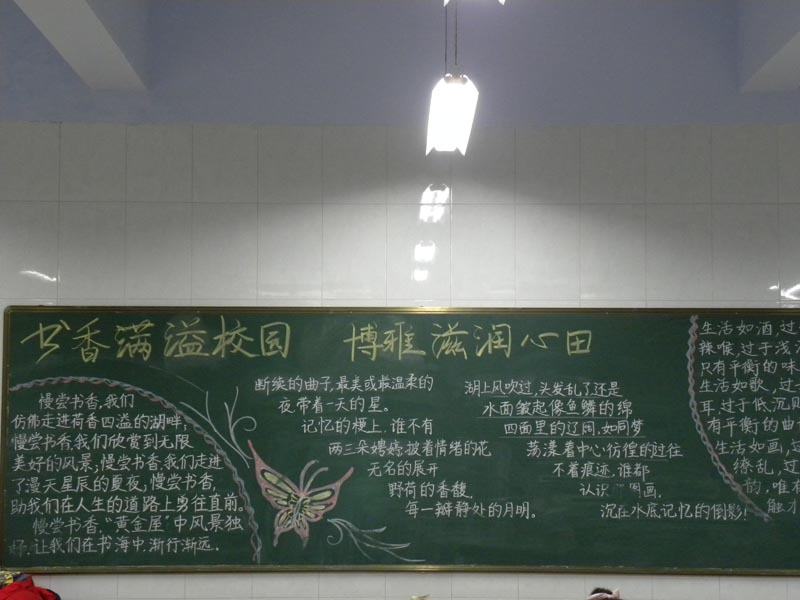 书香满溢校园 博雅滋润心田
慢尝书香,我们
仿佛走进荷香四溢的湖畔;
慢尝书香,我们欣赏到无限
美好的风景;慢尝书香,我们走进
了漫天星辰的夏夜,慢尝书香,
助我们在人生的道路上勇往直前。
慢尝书香,"黄金屋"中风景独
好,让我们在书海中,渐行渐远.
断续的曲子,最美或最温柔的
夜带着一天的星。
记忆的梗上,谁不有
两三朵娉婷,披着情绪的花
无名的展开
野荷的香馥,
每一瓣静处的月明。
湖上风吹过,头发乱了,还是
水面皱起像鱼鳞的锦
四面里的辽阔,如同梦
荡漾着中心彷徨的过往
不着痕迹,谁都
认识 图画,
沉在水底记忆的倒影!
生活如酒,过
辣喉,过于浅
只有平衡的味
生活如歌,过
耳,过于低,沉则
有平衡的曲
生活如画,过
缭乱,过
韵,唯有
触才